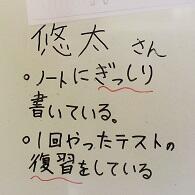 悠太 さん
○ノートにぎっしり
書いている。
○1回やったテストの
復習をしている